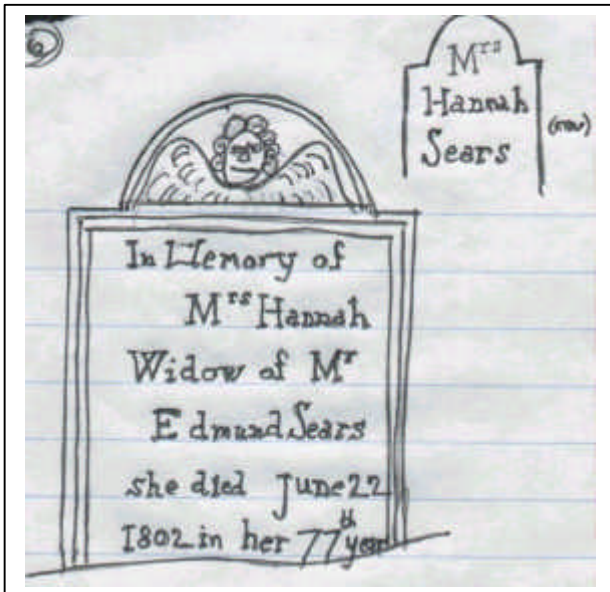 6
Mrs
Hannah
Sears
In Memory of
Mrs Hannah
Widow of Mr
Edmund Sears
she died June 22
1802 in her 77th year